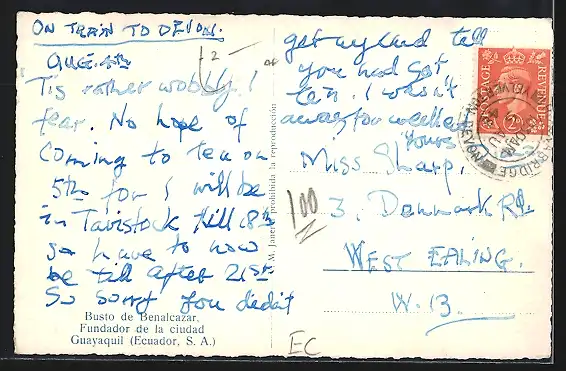 ON TRAIN TO DEVON.
AUG. 4th
Tis rather wobbly I
fear. No hope of
coming to tea on
5th for I will be
in Tavistock till 18th
so have to now
be till after 21st
So sorry you didnt
get my card tell
you had got
I wasn't
away for
Yours
Miss Sharp,
3, Denmark Rd.
WEST EALING.
W. 13.
Busto de Benalcazar,
Fundador de la ciudad
Guayaquil (Ecuador, S. A.)
M. Janer prohibida la reproducción
POSTAGE
REVENUE
YELVERTON
DEVON
2
100
EC